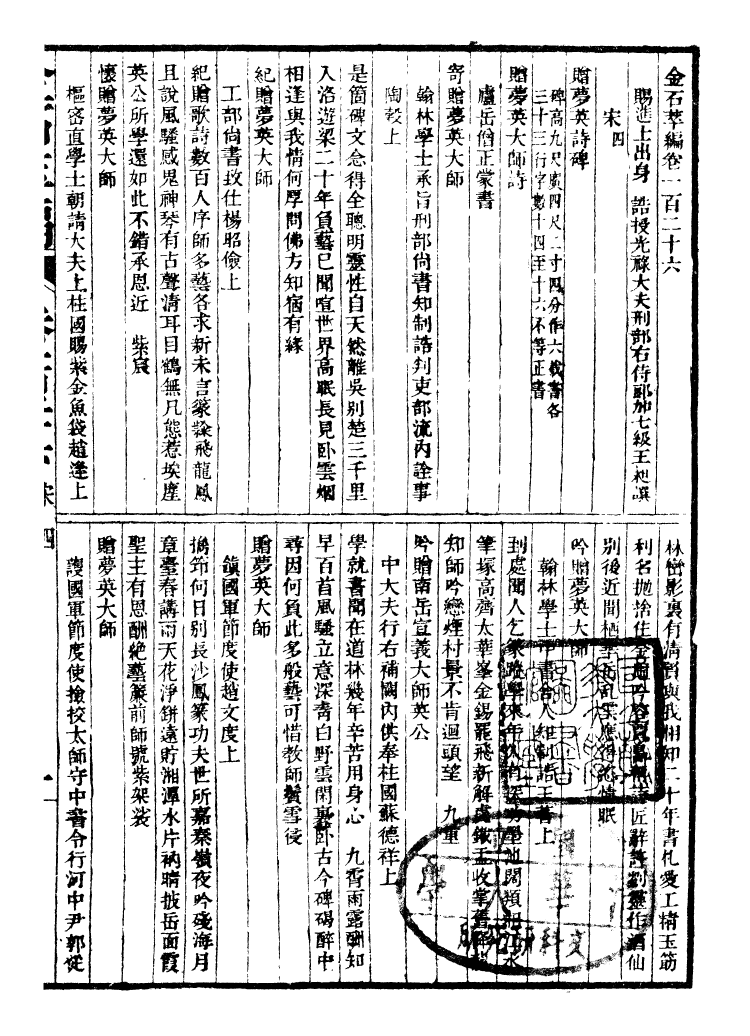 金石萃編卷一百二十六
賜進士出身 誥授光祿大夫刑部右侍郎加七級王昶譔
宋四
贈夢英詩碑
碑高九尺廣四尺二寸四分作六截書各
三十三行字數十四至十六不等正書
贈夢英大師詩
廬岳僧正蒙書
寄贈夢英大師
翰林學士承旨刑部尚書知制誥判吏部流內詮事
陶穀上
是箇碑文念得全聰明靈性自天然離吳別楚三千里
入洛遊梁二十年負藝已聞喧世界高眠長見臥雲烟
相逢與我情何厚問佛方知宿有緣
紀贈夢英大師
工部尚書致仕楊昭儉上
紀贈歌詩數百人序師多藝各求新未言篆隸飛龍鳳
且說風騷感鬼神琴有古聲清耳目鶴無凡態惹埃塵
英公所學還如此不錯承恩近 紫宸
懷贈夢英大師
樞密直學士朝請大夫上柱國賜紫金魚袋趙逢上
林巒影裏有清賢與我相知二十年書札愛工精玉筯
利名拋捨住金 吟 匠辭許劉靈作酒仙
別後近聞栖 亂雲應得 情眠
吟贈夢英大師
翰林學士中書舍人知制誥王著上
到處聞人乞篆 學來年 有 功墨池闊 水
筆塚高齊太華峯金錫罷飛新解 鐵盂收掌舊
知師吟戀煙村景不肯迴頭望 九重
吟贈南岳宣義大師英公
中大夫行右補闕內供奉柱國蘇德祥上
學就書聞在道林幾年辛苦用身心 九霄雨露酬知
早百首風騷立意深靑白野雲閑裏臥古今碑碣醉中
尋因何負此多般藝可惜教師鬢雪侵
贈夢英大師
鎮國軍節度使趙文度上
擕笻何日別長沙鳳篆功夫世所嘉秦嶺夜吟殘海月
章臺春講雨天花淨缾遠貯湘潭水片衲晴披岳面霞
聖主有恩酬絕藝簾前師號紫袈裟
贈夢英大師
護國軍節度使檢校太師守中書令行河中尹郭從